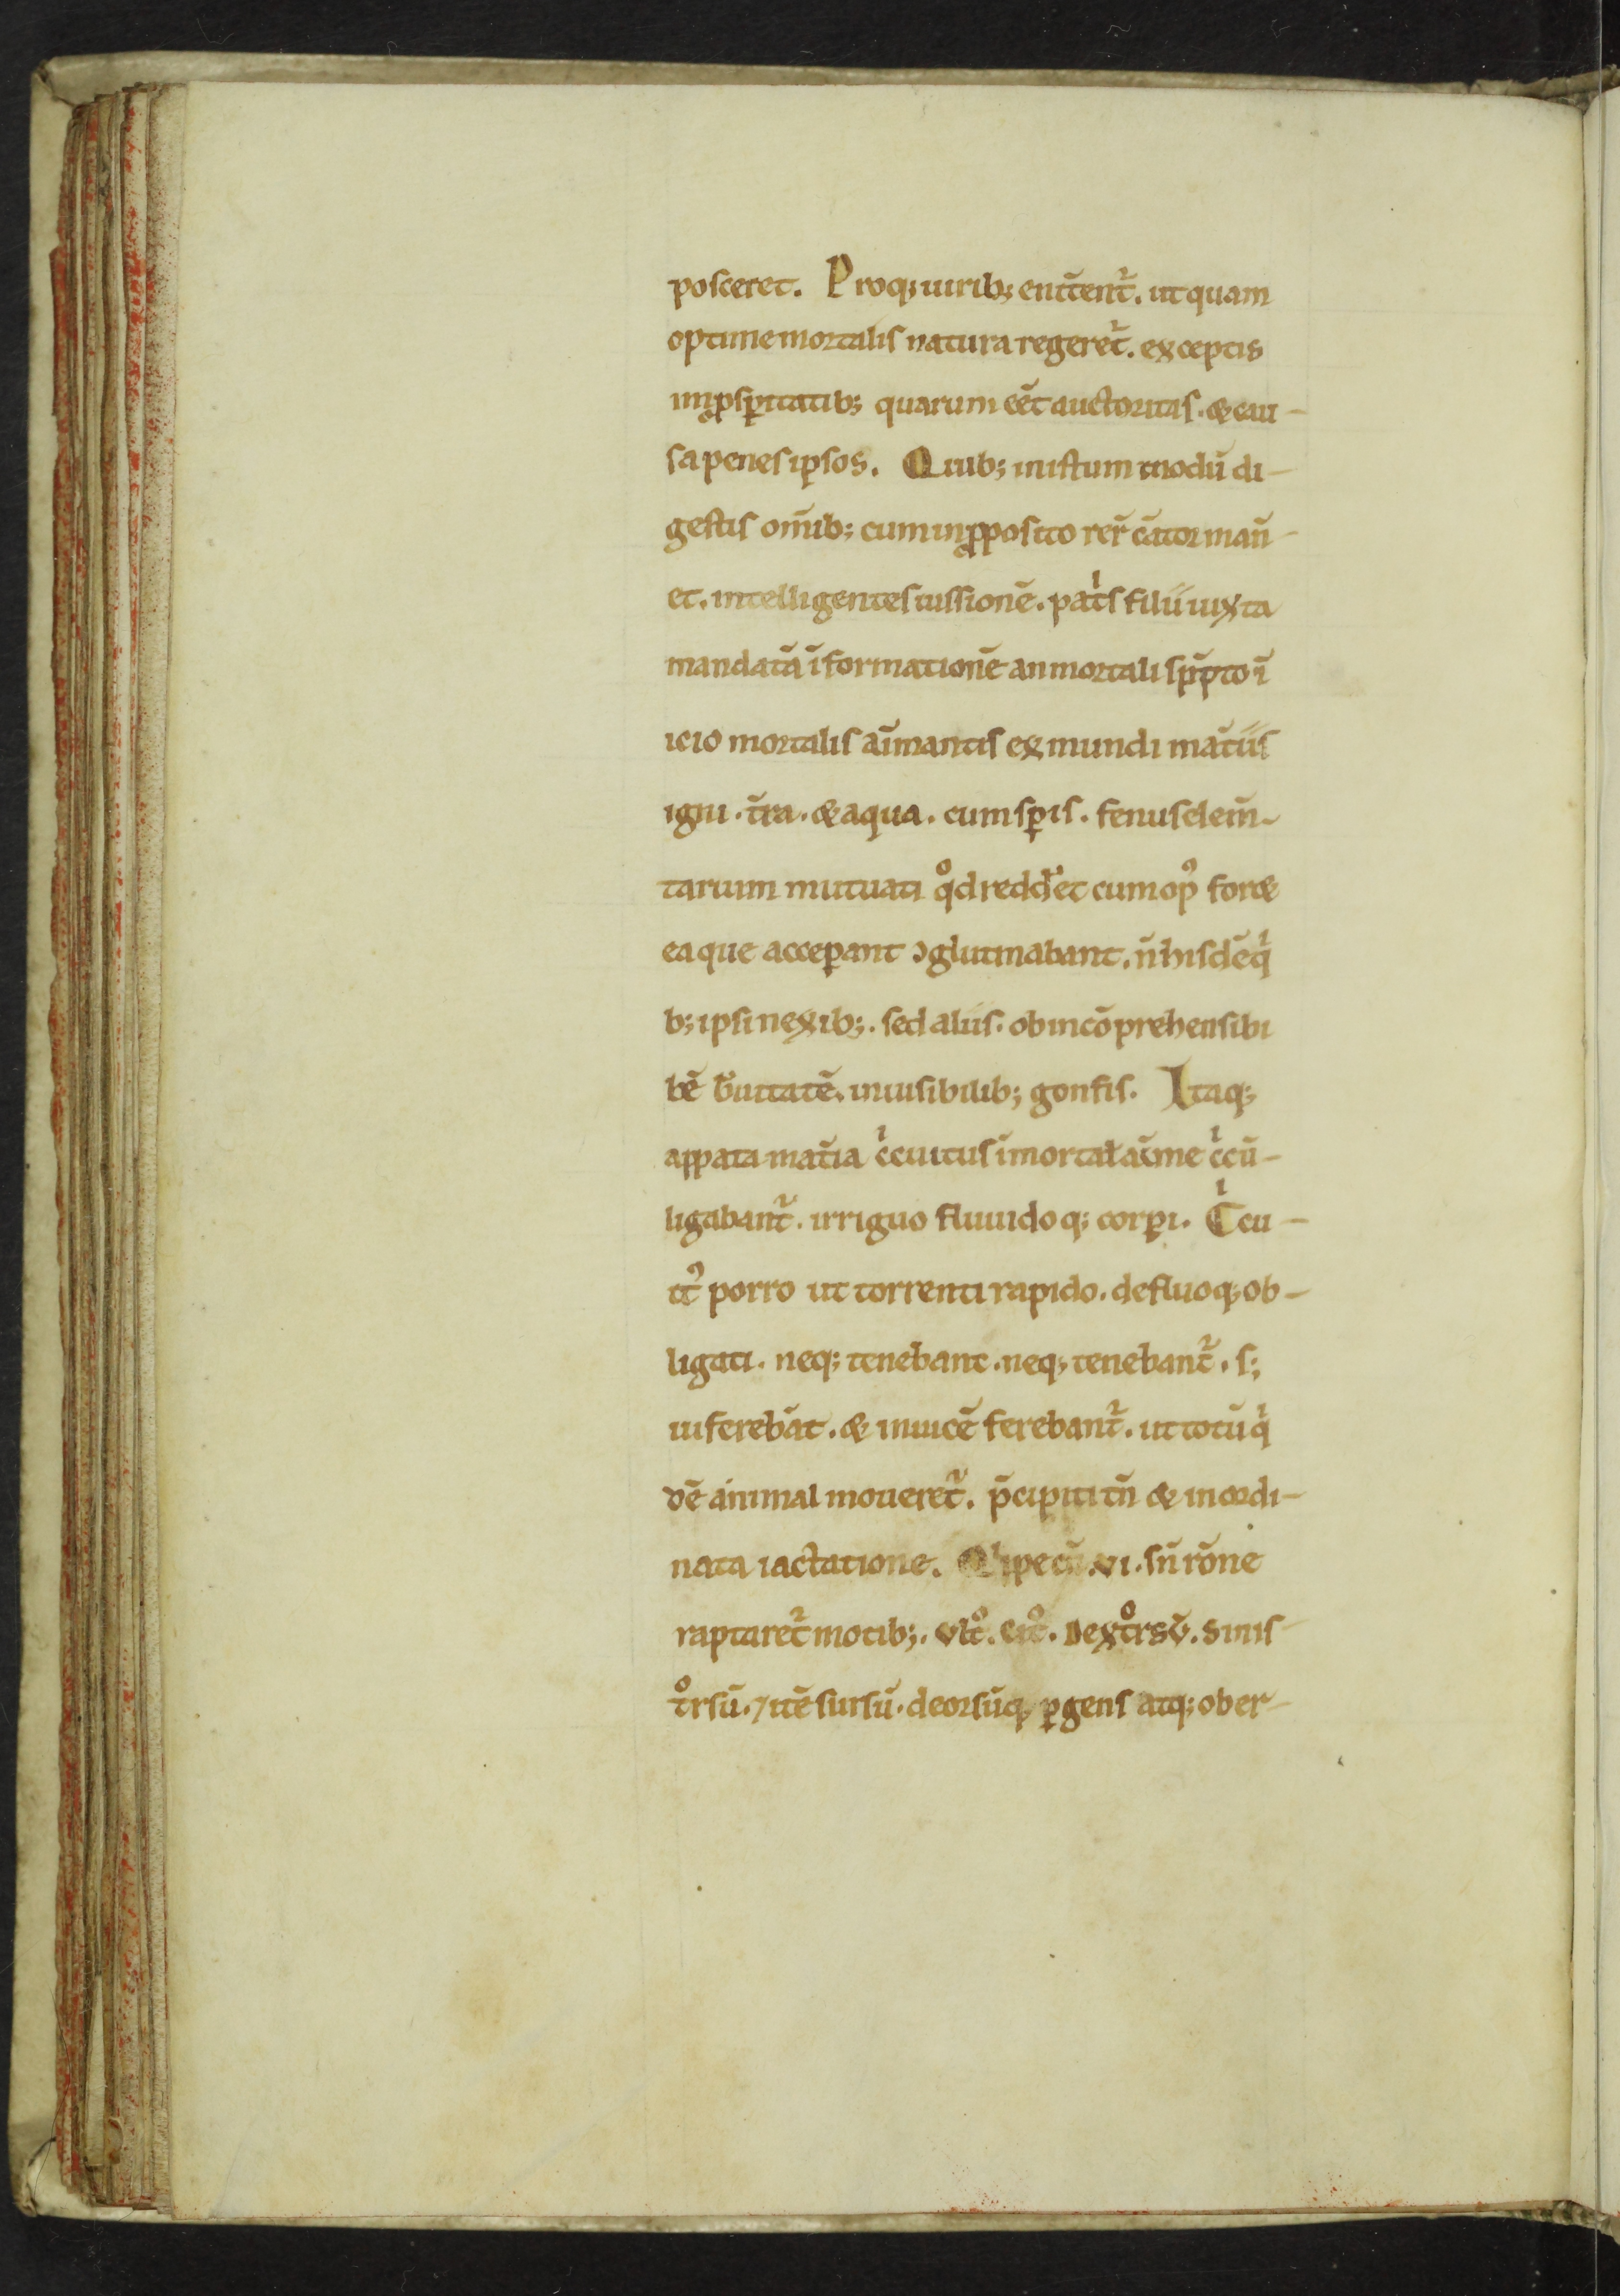 posceret. Proq; uirib; enit̄ent᷑. ut quam
optime mortalis natura regeret᷑. exceptis
inꝓsꝑitatib; quarum eēt auctoritas. & cau-
sa penes ipsos. Quib; in istum modū di-
gestis om̄ib; cum in ꝓposito rer̄ c̄ator man̄-
et. intelligentes iussionē. patͥs filii iuxta
mandatā īformationē
icio mortalis aīmantis ex mundi mat̄iis
igni. t̄ra. & aqua. cum sꝑis. fenus elem̄-
tarium mutuati qͦd redd̄et cum opꝰ foret
ea que acceꝑant ꝯglutinabant. n̄ hisdē qͥ
b; ipsi nexib;. sed aliis. ob incōprehensibi
bē b̄uitatē. inuisibilib; gonfis. Itaq;
apꝑata mat̄ia cͥcuitus īmortal̄ aīme cͥcū-
ligabant᷑. irriguo fluuidoq; corꝑi. Cͥcu-
itꝰ porro ut torrenti rapido. defluoq; ob-
ligati. neq; tenebant. neq; tenebant᷑. s;
ui ferebāt. & inuicē ferebant᷑. ut totū qͥ
dē animal moueret᷑. p̄cipiti tn̄ & inordi-
nata iactatione. Qͥppe cū .vi. sn̄ rōne
raptaret᷑ motib;. vltͦ. citͦ. dextͦrsū. sinis
tͦrsū. ⁊ itē sursū. deorsūq; ꝑgens atq; ober-